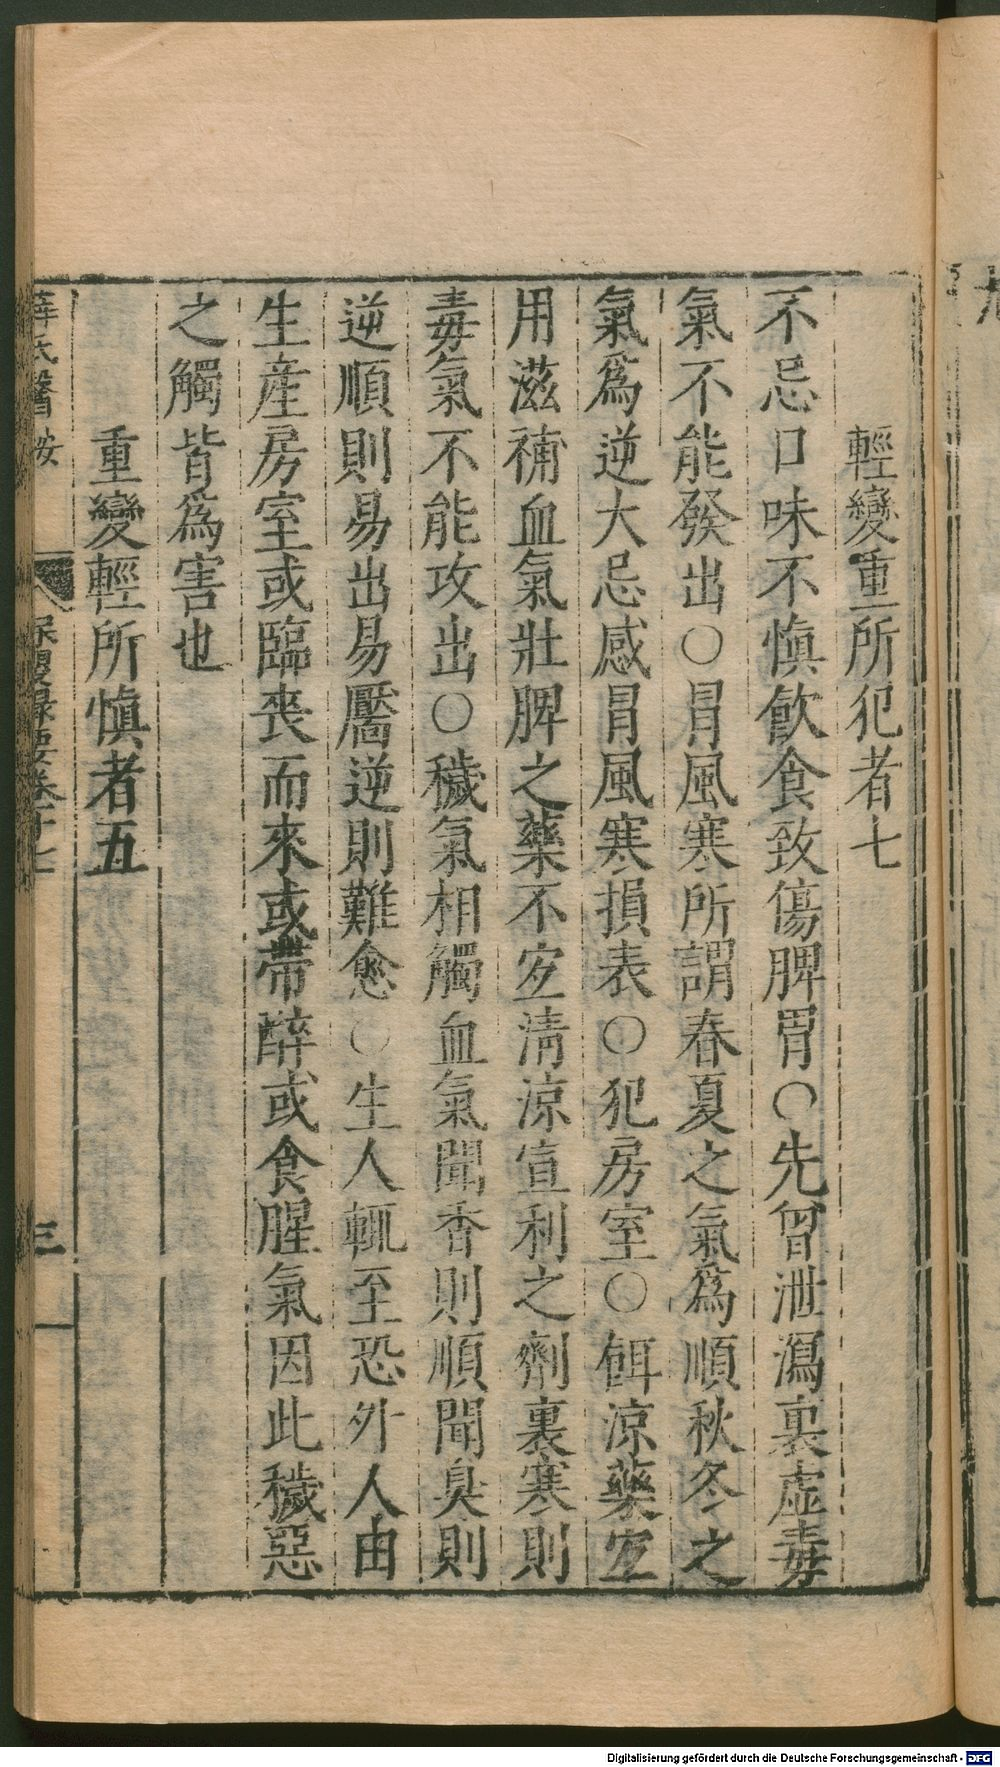 輕變重所犯者七
不忌口味不慎飲食致傷脾胃○先曾泄瀉裏虛毒
氣不能發出○冒風寒所謂春夏之氣為順秋冬之
氣為逆大忌感冒風寒損表○犯房室○餌涼藥宜
用滋補血氣壯脾之藥不宜清涼宣利之劑裏寒則
毒氣不能攻出○穢氣相觸血氣聞香則順聞臭則
逆順則易出易靨逆則難愈○生人輒至恐外人由
生產房室或臨喪而來或帶醉或食腥氣因此穢惡
之觸皆為害也
重變輕所慎者五
薛氏醫按
保嬰撮要卷十七
三
Digitalisierung gefördert durch die Deutsche Forschungsgemeinschaft - DFG